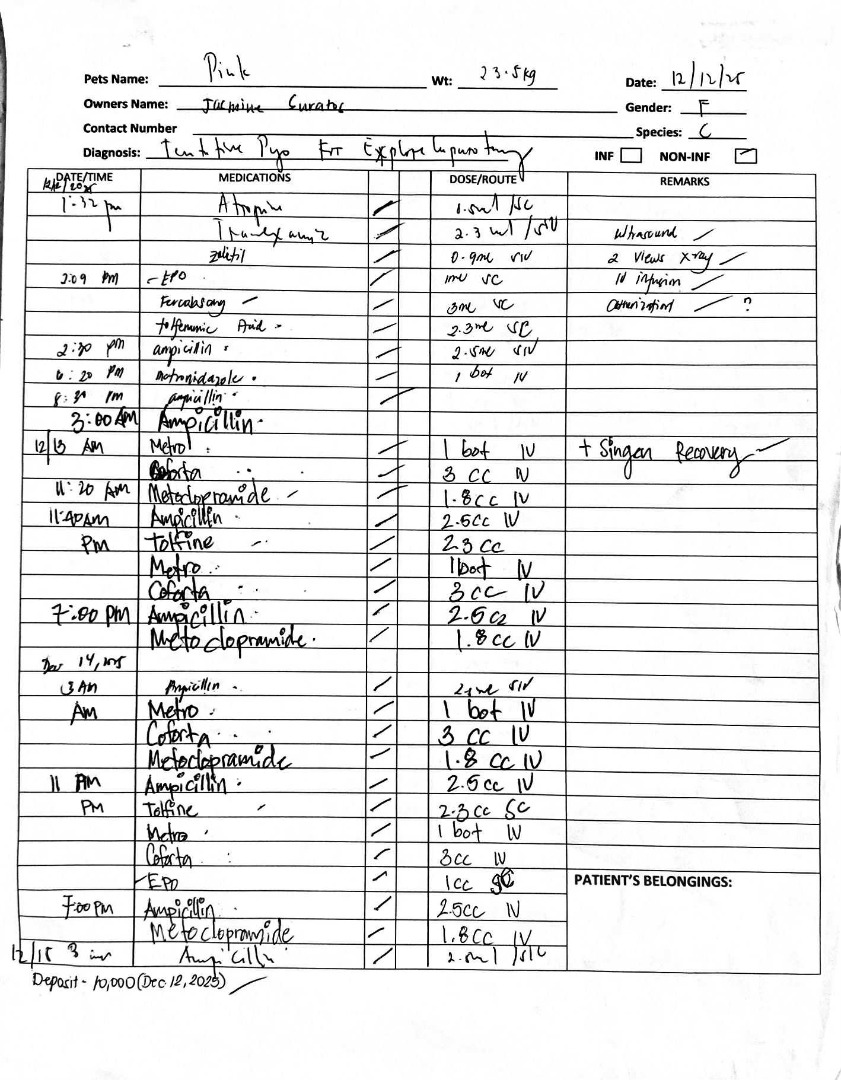 Pets Name: Pink Wt: 23.5kg Date: 12/12/25
Owners Name: Jasmine Gender: F
Contact Number Species: C
Diagnosis: Pyo For INF NON-INF
DATE/TIME MEDICATIONS DOSE/ROUTE REMARKS
12/12/2025
1:32 pm Atropine /SC
2.3 ml /SIV Ultrasound
0.9ml SIV 2 Views X-ray
2:09 PM - EPO 1ml SC IV infusion
3ml SC ?
Acid 2.3ml SC
2:30 pm ampicillin 2.5ml SIV
6:20 PM metronidazole 1 bot IV
8:30 PM ampicillin
3:00 AM Ampicillin
12/13 AM Metro 1 bot IV + Singen Recovery
Coforta 3 cc IV
11:20 AM Metoclopramide 1.8cc IV
11:40AM Ampicillin 2.5cc IV
PM Tolfine 2.3 cc
Metro 1 bot IV
Coforta 3 cc IV
7:00 PM Ampicillin 2.5cc IV
Metoclopramide 1.8cc IV
Dec 14, 2025
3 AM Ampicillin SIV
AM Metro 1 bot IV
Coforta 3 cc IV
Metoclopramide 1.8 cc IV
11 AM Ampicillin 2.5cc IV
PM Tolfine 2.3cc SC
Metro 1 bot IV
Coforta 3cc IV
- EPO 1cc SC
PATIENT'S BELONGINGS:
7:00PM Ampicillin 2.5cc IV
Metoclopramide 1.8cc IV
12/15 3 am Ampicillin
Deposit - 10,000 (Dec 12, 2025)